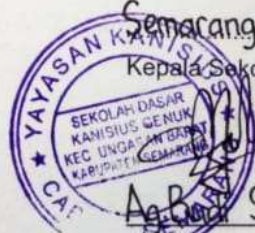 Semarang
Kepala Sekol
YAYASAN KANISIUS
SEKOLAH DASAR
KANISIUS GENUK
KEC UNGARAN BARAT
KABUPATEN SEMARANG